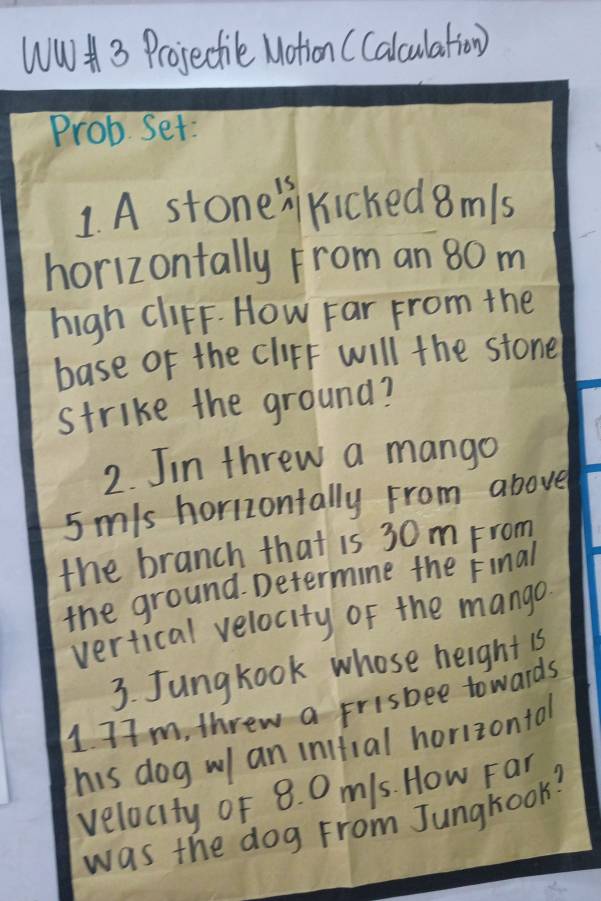 WW#3 Projectile Motion (Calculation)
Prob. Set:
1. A stone is kicked 8m/s
horizontally from an 80 m
high cliff. How far from the
base of the cliff will the stone
strike the ground?
2. Jin threw a mango
5 m/s horizontally from above
the branch that is 30 m from
the ground. Determine the final
vertical velocity of the mango.
3. Jungkook whose height is
1.77 m, threw a frisbee towards
his dog w/ an initial horizontal
velocity of 8.0 m/s. How far
was the dog from Jungkook?